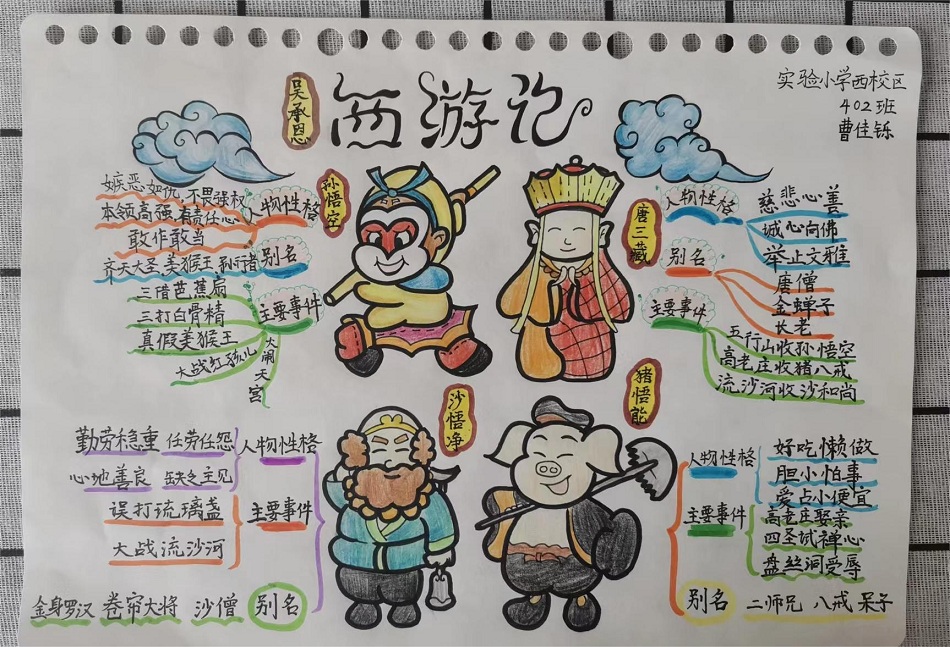 西游记
吴承恩
实验小学西校区
402班
曹佳铄
孙悟空
人物性格
嫉恶如仇 不畏强权
本领高强 有责任心
敢作敢当
别名
齐天大圣,美猴王,孙行者
主要事件
三借芭蕉扇
三打白骨精
真假美猴王
大战红孩儿
大闹天宫
唐三藏
人物性格
慈悲心善
诚心向佛
举止文雅
别名
唐僧
金蝉子
长老
主要事件
五行山收孙悟空
高老庄收猪八戒
流沙河收沙和尚
沙悟净
人物性格
勤劳稳重 任劳任怨
心地善良 缺乏主见
主要事件
误打琉璃盏
大战流沙河
别名
金身罗汉 卷帘大将 沙僧
猪悟能
人物性格
好吃懒做
胆小怕事
爱占小便宜
主要事件
高老庄娶亲
四圣试禅心
盘丝洞受辱
别名
二师兄 八戒 呆子